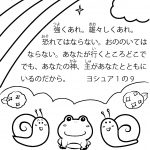 強くあれ。雄々しくあれ。
恐れてはならない。おののいては
ならない。あなたが行くところどこで
でも、あなたの神、主があなたとともに
いるのだから。 ヨシュア1の9